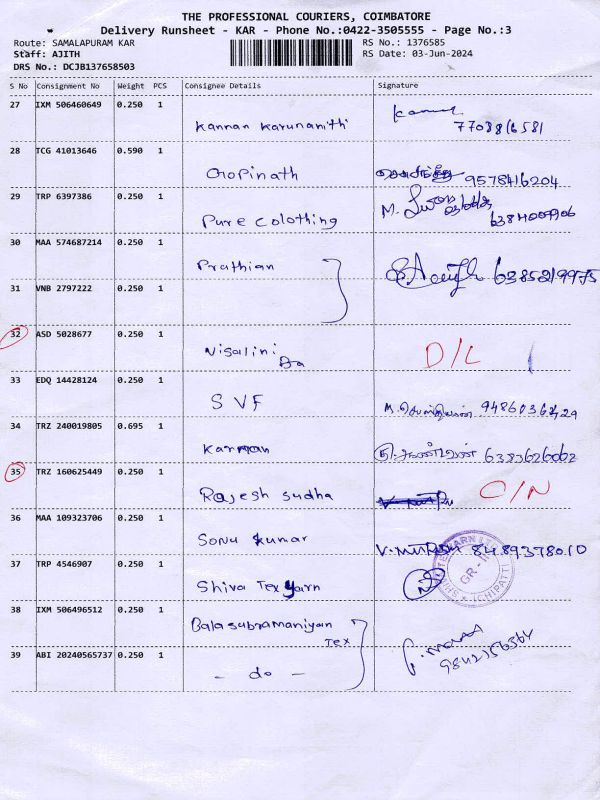 THE PROFESSIONAL COURIERS, COIMBATORE
Delivery Runsheet - KAR - Phone No.:0422-3505555 - Page No.:3
Route: SAMALAPURAM KAR
RS No.: 1376585
Staff: AJITH
RS Date: 03-Jun-2024
DRS No.: DCJB137658503
S No Consignment No Weight PCS Consignee Details Signature
27 IXM 506460649 0.250 1
Kannan Karunanithi
28 TCG 41013646 0.590 1
Gopinath 9578416204
29 TRP 6397386 0.250 1
Pure Colothing M.
30 MAA 574687214 0.250 1
Prathian 6385219975
31 VNB 2797222 0.250 1
32 ASD 5028677 0.250 1
Nisalini D/L
33 EDQ 14428124 0.250 1
SVF
34 TRZ 240019805 0.695 1
Kannan 6383626062
35 TRZ 160625449 0.250 1
Rajesh sudha O/N
36 MAA 109323706 0.250 1
Sonu kumar 8489378010
37 TRP 4546907 0.250 1
Shiva Tex yarn
38 IXM 506496512 0.250 1
Balasubramaniyan
Tex
39 ABI 20240565737 0.250 1
- do - 9842156364